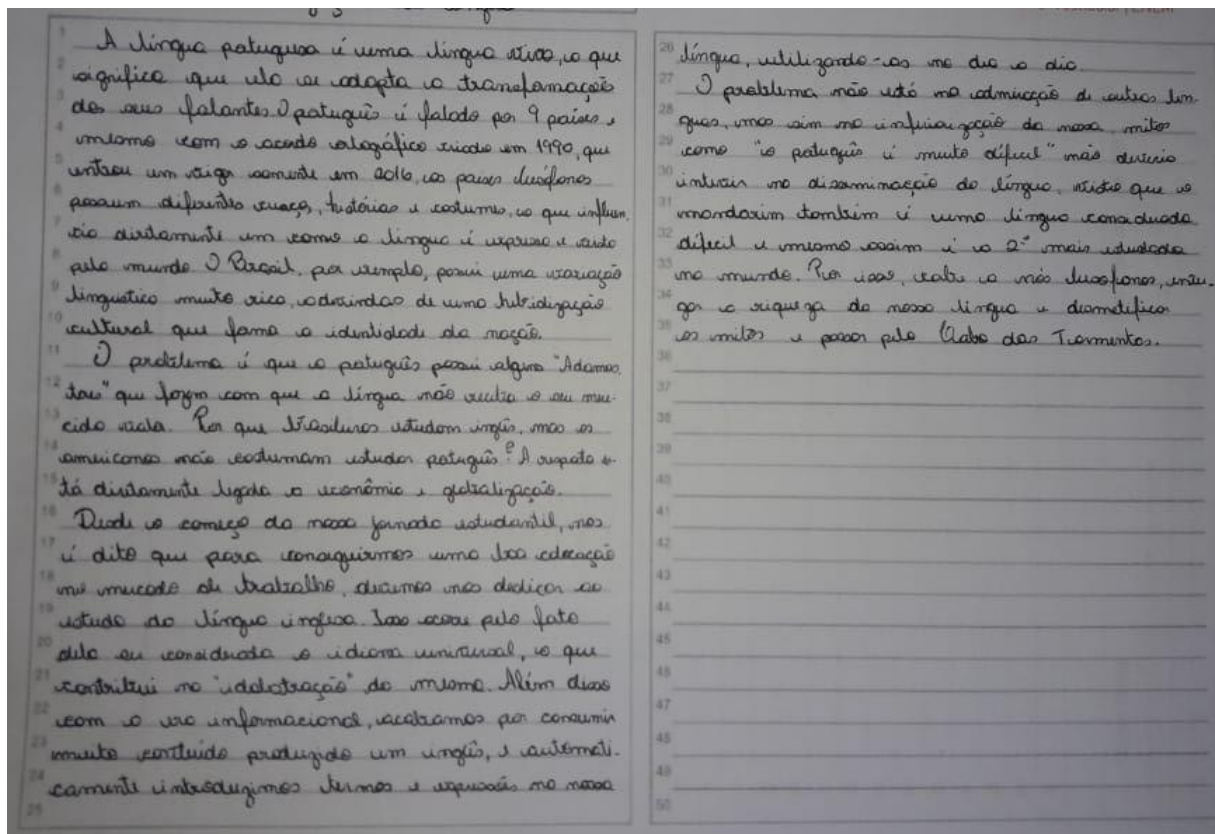 A língua portuguesa é uma língua viva, o que
significa que ela se adapta a transformação
dos seus falantes. O português é falado por 9 países e
mesmo com o acordo ortográfico criado em 1990, que
entrou em vigor somente em 2016, os países lusófonos
possuem diferentes raças, histórias e costumes, o que influen-
cia diretamente em como a língua é expressa e vista
pelo mundo. O Brasil, por exemplo, possui uma variação
linguística muito rica, advinda de uma hibridização
cultural que forma a identidade da nação.
O problema é que o português possui alguns "Adamas-
tores" que fazem com que a língua não receba o seu mere-
cido valor. Por que brasileiros estudam inglês, mas os
americanos não costumam estudar português? A resposta es-
tá diretamente ligada a economia e globalização.
Desde o começo da nossa jornada estudantil, nos
é dito que para conseguirmos uma boa colocação
no mercado de trabalho, devemos nos dedicar ao
estudo da língua inglesa. Isso ocorre pelo fato
dela ser considerada o idioma universal, o que
contribui na "idolatração" do mesmo. Além disso
com a era informacional, acabamos por consumir
muito conteúdo produzido em inglês, e automati-
camente introduzimos termos e expressões na nossa
língua, utilizando-as no dia a dia.
O problema não está na admiração de outras lín-
guas, mas sim na inferiorização da nossa, mitos
como "o português é muito difícil" não deveria
intervir na disseminação da língua, visto que o
mandarim também é uma língua considerada
difícil e mesmo assim é a 2ª mais estudada
no mundo. Por isso, cabe a nós lusófonos, enxer-
gar a riqueza da nossa língua e desmistificar
os mitos e passar pelo Cabo das Tormentas.